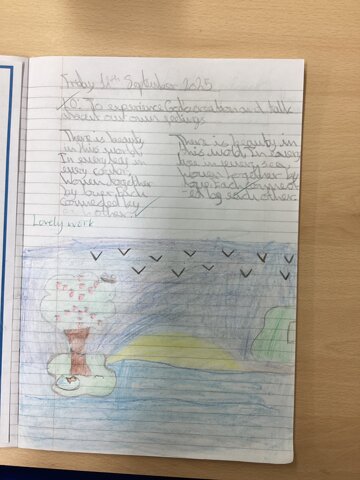 Friday 12th September 2025
LO: To experience God's creation and talk
about our own feelings
There is beauty
in this world
In every leaf in
every color,
Woven together
by love Each
connected by
each other.
There is beauty in
this world In every
leaf in every sea
woven together by
love Each connect
-ed by each other
Lovely work